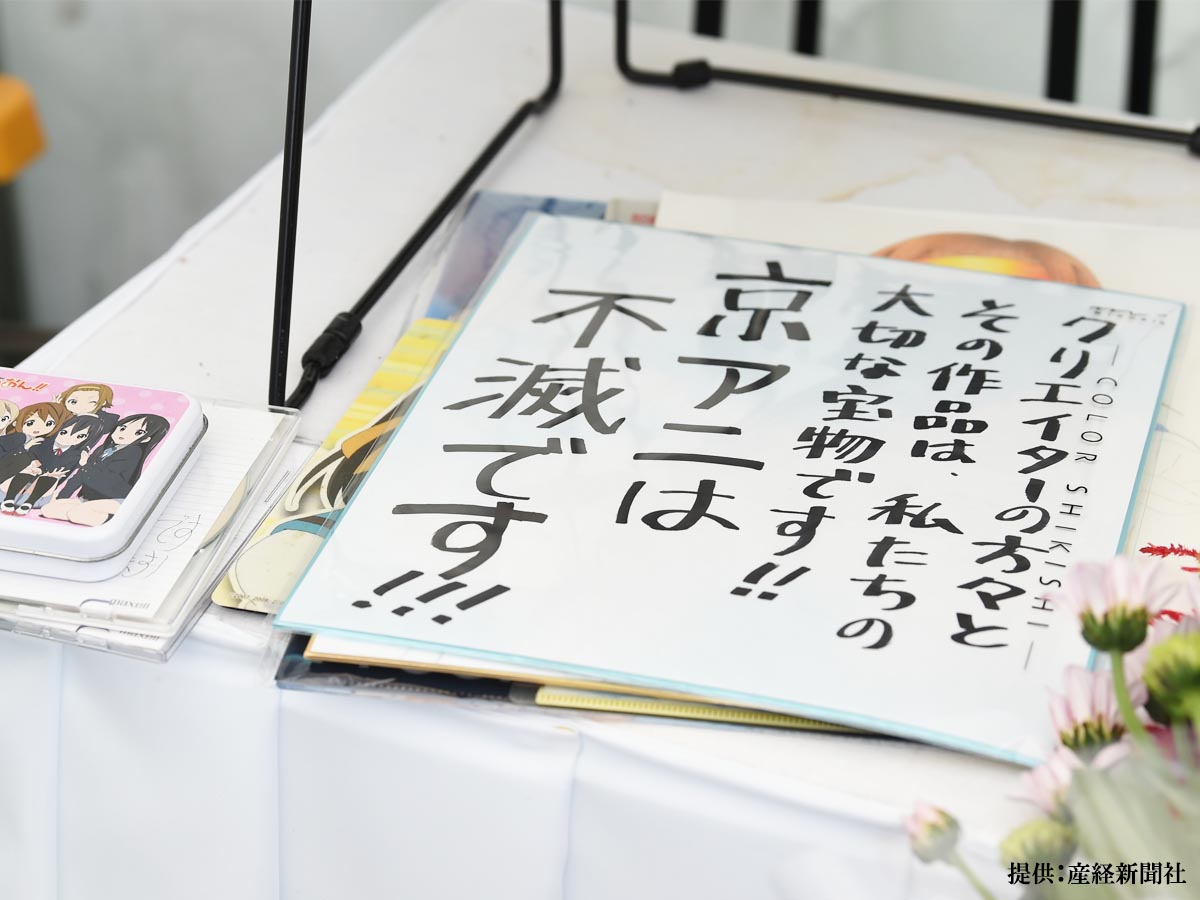 クリエイターの方々と
その作品は、私たちの
大切な宝物です!!
京アニは
不滅です!!!
COLOR SHIKISHI
maxell
maxell
提供:産経新聞社